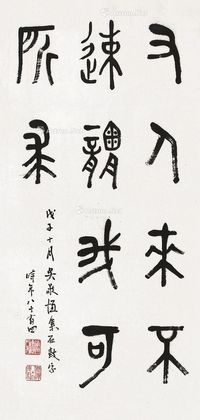 又人來不
速謂我可
所求
戊子十月吳敬恆集石鼓字
時年八十有四